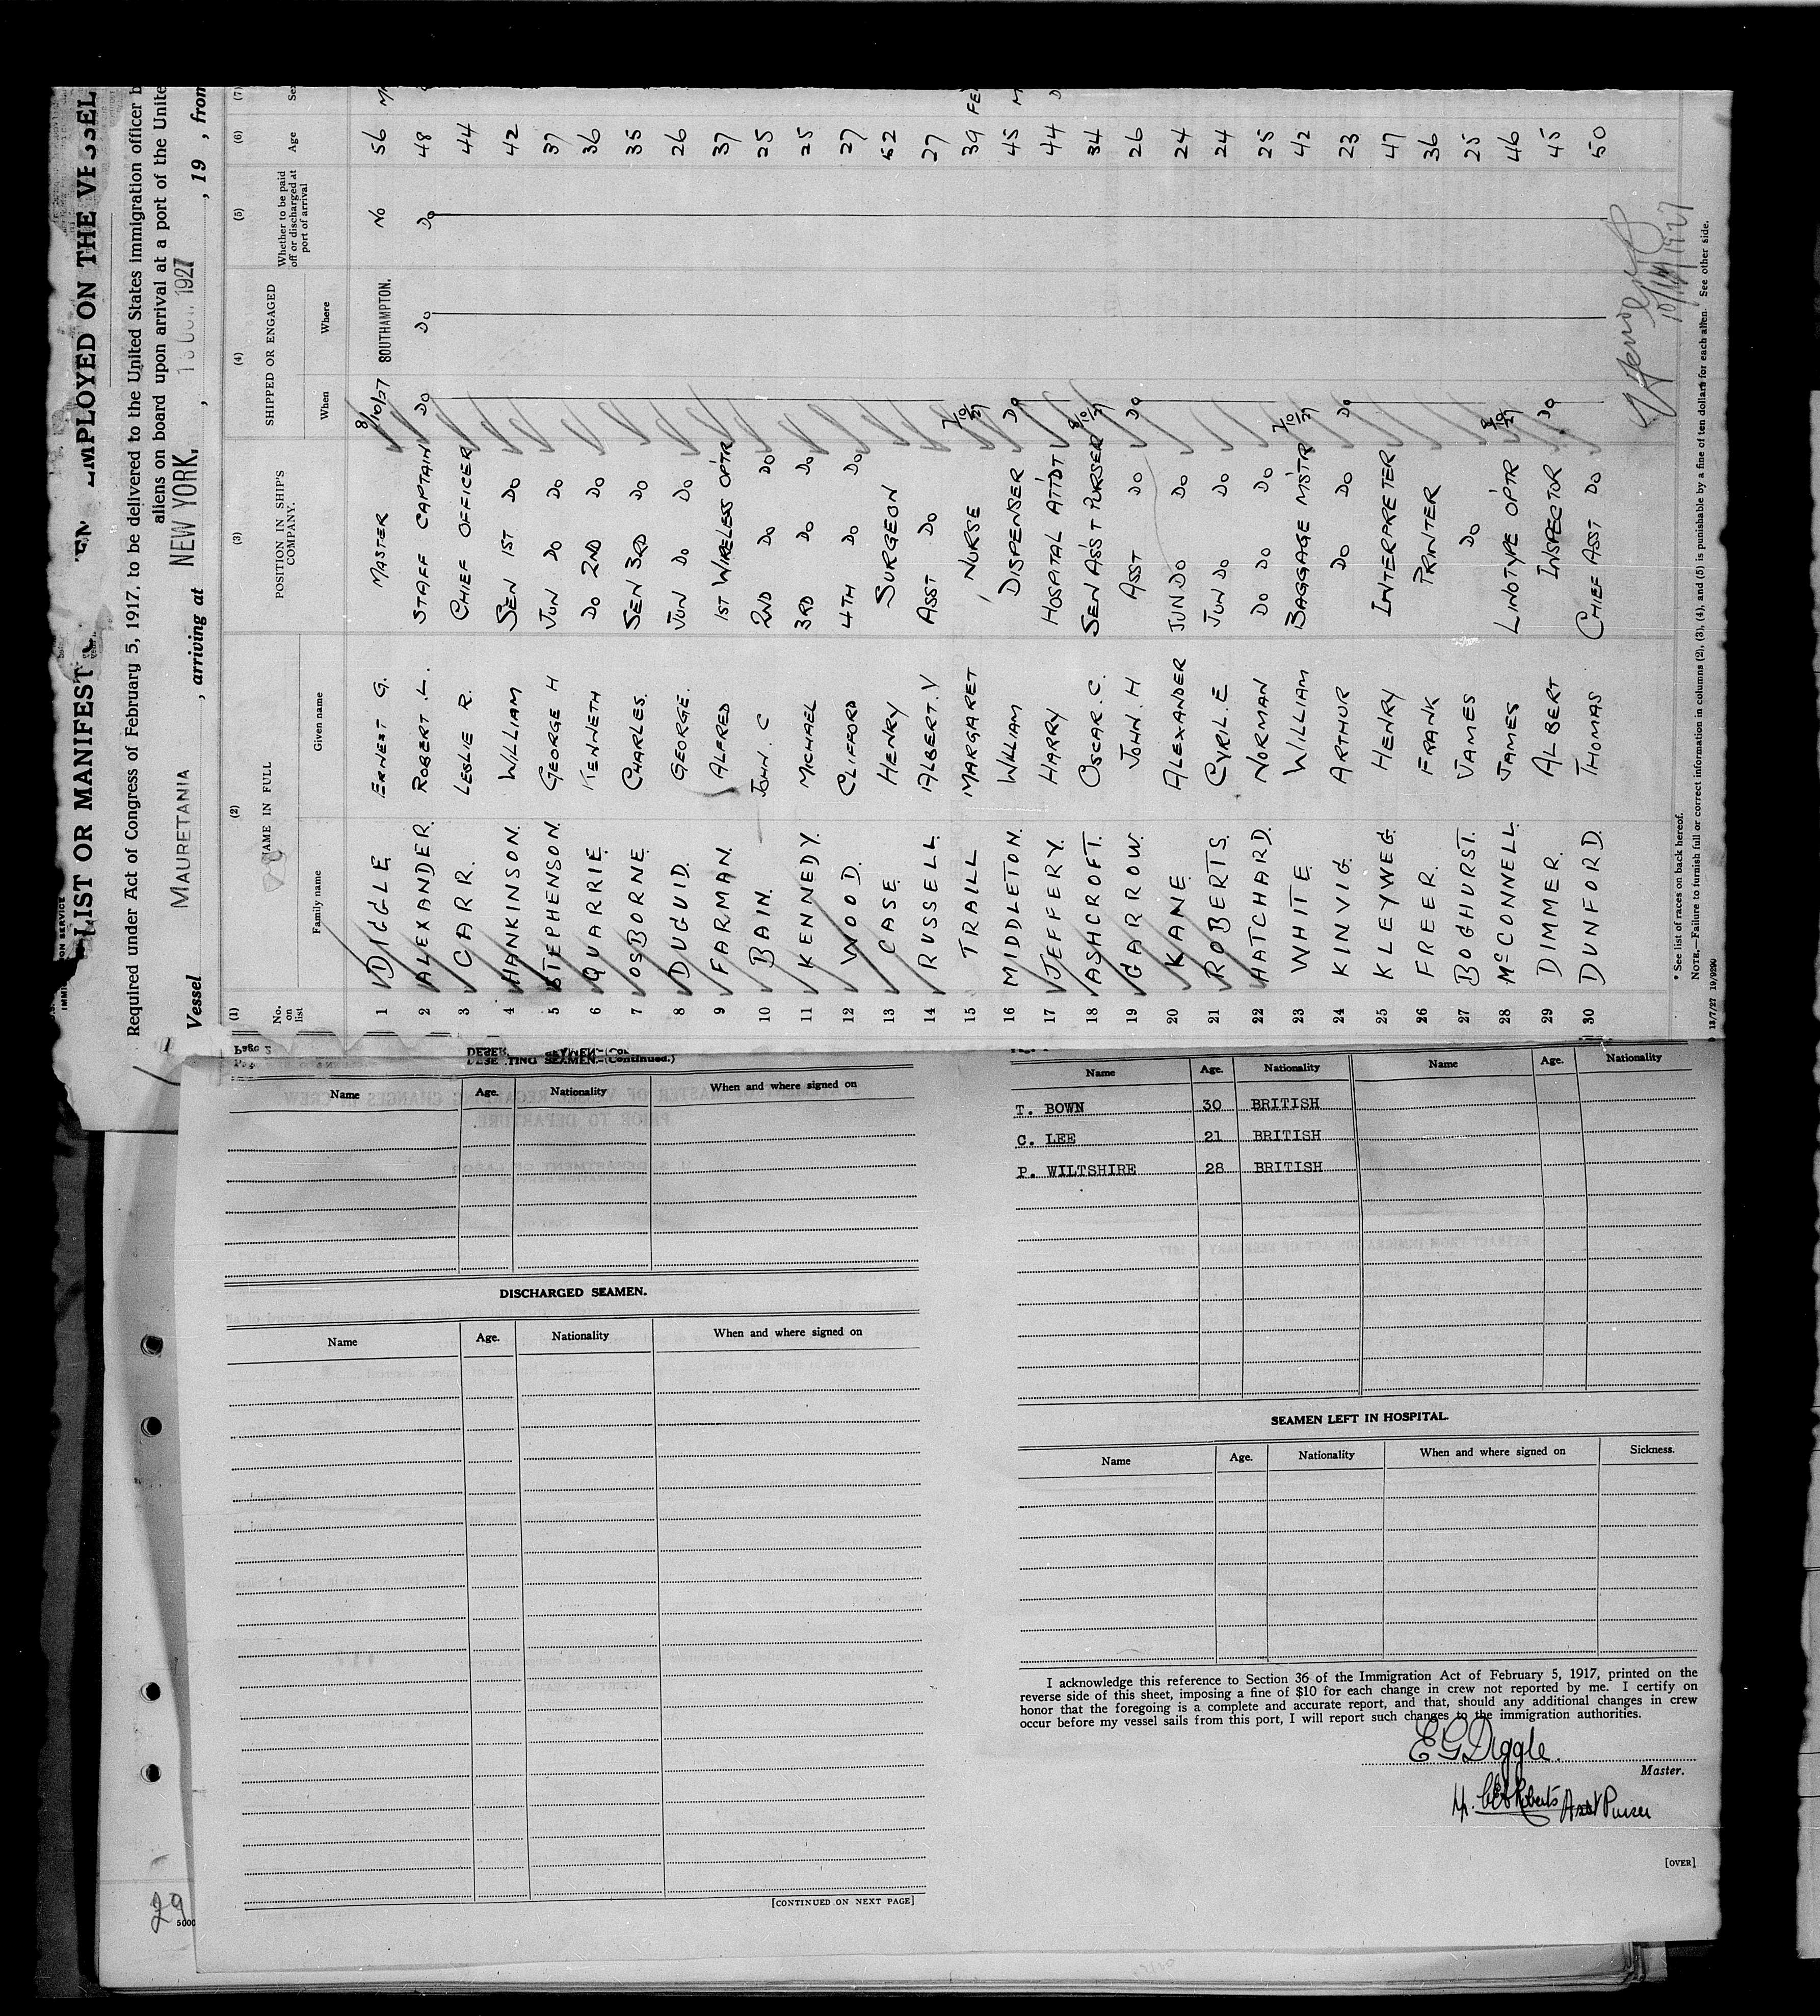 ON SERVICE
LIST OR MANIFEST EMPLOYED ON THE VESSEL
Required under Act of Congress of February 5, 1917, to be delivered to the United States immigration officer b
aliens on board upon arrival at a port of the Unite
Vessel MAURETANIA, arriving at NEW YORK, 1927, 19 , from
(1) (2) (3) (4) (5) (6) (7)
No. on list NAME IN FULL POSITION IN SHIP'S COMPANY. SHIPPED OR ENGAGED Whether to be paid off or discharged at port of arrival Age Se
Family name Given name When Where
1 DIGGLE ERNEST G. MASTER 8/10/27 SOUTHAMPTON. NO 56 M
2 ALEXANDER. ROBERT. L. STAFF CAPTAIN DO DO DO 48
3 CARR. LESLIE R. CHIEF OFFICER 44
4 HANKINSON. WILLIAM SEN 1ST DO 42
5 STEPHENSON. GEORGE H JUN DO DO 37
6 QUARRIE. KENNETH DO 2ND DO 36
7 OSBORNE. CHARLES. SEN 3RD DO 35
8 DUGUID. GEORGE. JUN DO DO 26
9 FARMAN. ALFRED 1ST WIRELESS OPTR 37
10 BAIN. JOHN. C 2ND DO DO 25
11 KENNEDY. MICHAEL 3RD DO DO 25
12 WOOD. CLIFFORD 4TH DO DO 27
13 CASE HENRY SURGEON 52
14 RUSSELL. ALBERT. V ASST DO 27
15 TRAILL MARGARET NURSE 7/10/27 39 FE
16 MIDDLETON. WILLIAM DISPENSER DO 45 M
17 JEFFERY. HARRY HOSPITAL ATTDT 44 D
18 ASHCROFT. OSCAR. C. SEN ASST PURSER 8/10/27 34
19 GARROW. JOHN. H ASST DO DO 26
20 KANE ALEXANDER JUN DO DO 24
21 ROBERTS. CYRIL. E JUN DO DO 24
22 HATCHARD. NORMAN DO DO DO 25
23 WHITE WILLIAM BAGGAGE MSTR 7/10/27 42
24 KINVIG. ARTHUR DO DO DO 23
25 KLEYWEG. HENRY INTERPRETER 47
26 FREER. FRANK PRINTER 36
27 BOGHURST. JAMES DO 25
28 McCONNELL JAMES LINOTYPE OPTR 8/10/27 46
29 DIMMER. ALBERT INSPECTOR DO 45
30 DUNFORD. THOMAS CHIEF ASST DO 50
10/14/1927
* See list of races on back hereof.
NOTE.—Failure to furnish full or correct information in columns (2), (3), (4), and (5) is punishable by a fine of ten dollars for each alien. See other side.
13/7/27 19/9290
Page 2
DESERTING SEAMEN—(Continued.)
Name Age. Nationality When and where signed on
DISCHARGED SEAMEN.
Name Age. Nationality When and where signed on
[CONTINUED ON NEXT PAGE]
29
5000
Name Age. Nationality Name Age. Nationality
T. BOWN 30 BRITISH
C. LEE 21 BRITISH
P. WILTSHIRE 28 BRITISH
SEAMEN LEFT IN HOSPITAL.
Name Age. Nationality When and where signed on Sickness.
I acknowledge this reference to Section 36 of the Immigration Act of February 5, 1917, printed on the
reverse side of this sheet, imposing a fine of $10 for each change in crew not reported by me. I certify on
honor that the foregoing is a complete and accurate report, and that, should any additional changes in crew
occur before my vessel sails from this port, I will report such changes to the immigration authorities.
E G Diggle.
Master.
Roberts Asst Purser
[OVER]